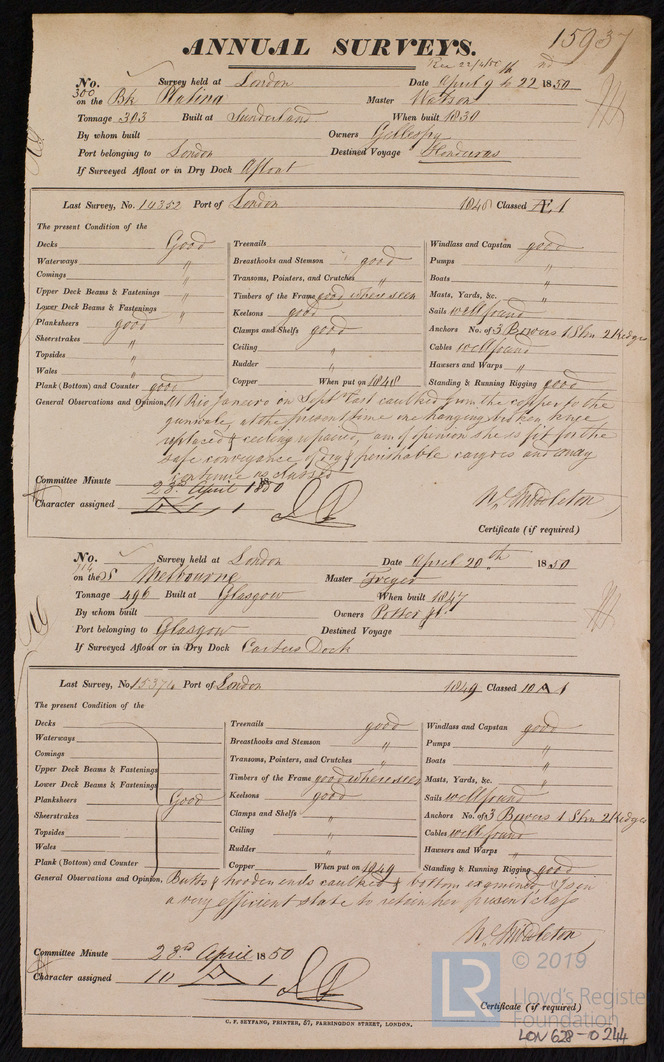 15937
ANNUAL SURVEYS.
Rec 22/4/50
No. 300 Survey held at London Date April 9th to 22nd 1850
on the Bk Platina Master Watson
Tonnage 303 Built at Sunderland When built 1830
By whom built Owners Gillespy
Port belonging to London Destined Voyage Honduras
If Surveyed Afloat or in Dry Dock Afloat
Last Survey, No. 14352 Port of London 1848 Classed Æ 1
The present Condition of the
Decks Good
Waterways "
Comings "
Upper Deck Beams & Fastenings "
Lower Deck Beams & Fastenings "
Planksheers good
Sheerstrakes "
Topsides "
Wales "
Plank (Bottom) and Counter good
Treenails
Breasthooks and Stemson good
Transoms, Pointers, and Crutches "
Timbers of the Frame good where seen
Keelsons good
Clamps and Shelfs good
Ceiling "
Rudder "
Copper When put on 1848
Windlass and Capstan good
Pumps "
Boats "
Masts, Yards, &c. "
Sails well found
Anchors No. of 3 Bowers 1 Stm 2 Kedges
Cables well found
Hawsers and Warps "
Standing & Running Rigging good
General Observations and Opinion, At Rio Janeiro in Septr last caulked from the copper to the
gunwale, at the present time one hanging broken knee
replaced & ceiling repaired, am of opinion she is fit for the
safe conveyance of dry & perishable cargoes and may
continue as classed
Committee Minute 23rd April 1850
Character assigned Æ 1
Wm Middleton
Certificate (if required)
No. 714 Survey held at London Date April 20th 1850
on the S Melbourne Master Freyer
Tonnage 496 Built at Glasgow When built 1847
By whom built Owners Potter Jr.
Port belonging to Glasgow Destined Voyage
If Surveyed Afloat or in Dry Dock Dock
Last Survey, No. 15374 Port of London 1849 Classed 10 A 1
The present Condition of the
Decks
Waterways
Comings
Upper Deck Beams & Fastenings
Lower Deck Beams & Fastenings
Planksheers Good
Sheerstrakes
Topsides
Wales
Plank (Bottom) and Counter
Treenails good
Breasthooks and Stemson "
Transoms, Pointers, and Crutches "
Timbers of the Frame good where seen
Keelsons good
Clamps and Shelfs "
Ceiling "
Rudder "
Copper When put on 1849
Windlass and Capstan good
Pumps "
Boats "
Masts, Yards, &c. "
Sails well found
Anchors No. of 3 Bowers 1 Stm 2 Kedges
Cables well found
Hawsers and Warps "
Standing & Running Rigging good
General Observations and Opinion, Butts & hooden ends caulked & bottom examined Is in
a very efficient state to retain her present class
Wm Middleton
Committee Minute 23rd April 1850
Character assigned 10 A 1
Certificate (if required)
C. F. SEYFANG, PRINTER, 57, FARRINGDON STREET, LONDON.
LR
© 2019
Lloyd's Register
Foundation
LON 628-0244